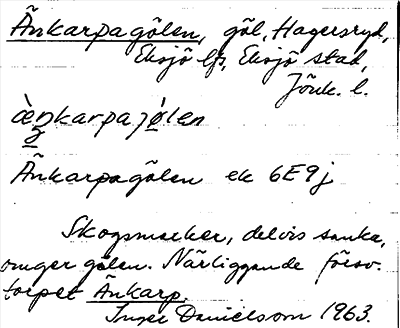 Änkarpagölen, göl, Hagersryd,
Eksjö lfs, Eksjö stad,
Jönk. l.
àŋkarpajö̀len
Änkarpagölen ek 6E9j
Skogsmarker, delvis sanka,
omger gölen. Närliggande försv.
torpet Änkarp.
Inger Danielsson 1963.